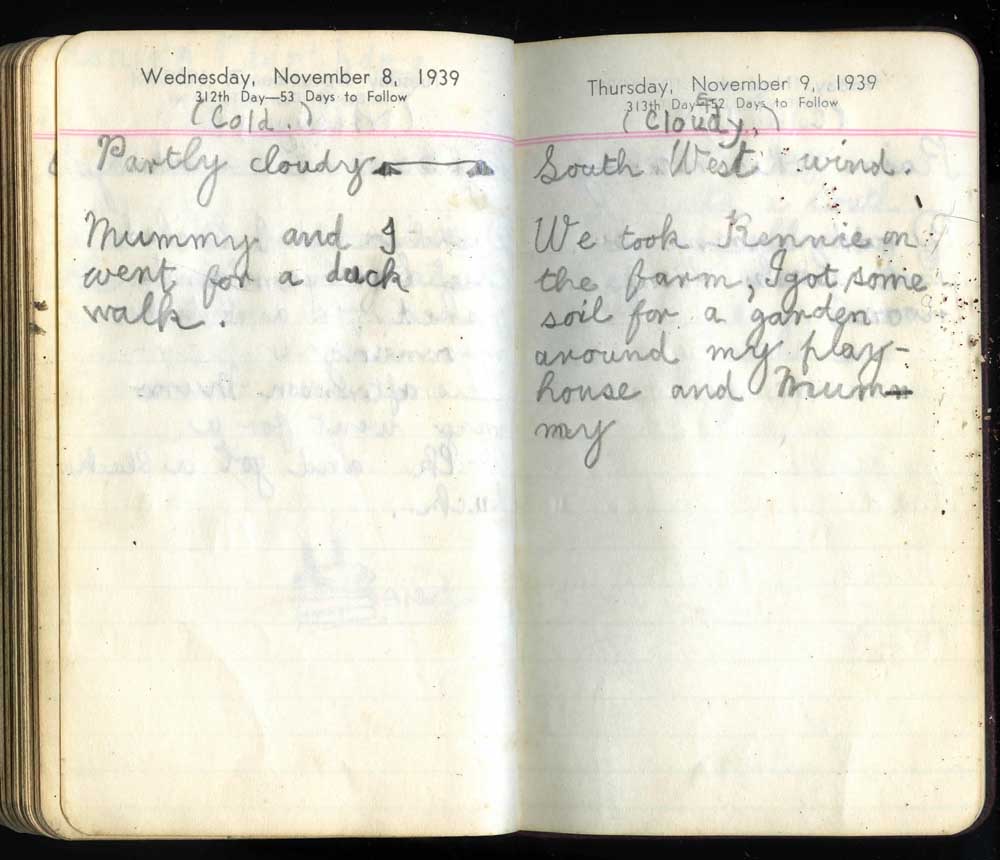 Wednesday, November 8, 1939
312th Day—53 Days to Follow
(Cold.)
Partly cloudy
Mummy and I
went for a duck
walk.
Thursday, November 9, 1939
313th Day—52 Days to Follow
(Cloudy.)
South West wind.
We took Rennie on
the farm, I got some
soil for a garden
around my play-
house and Mum-
my